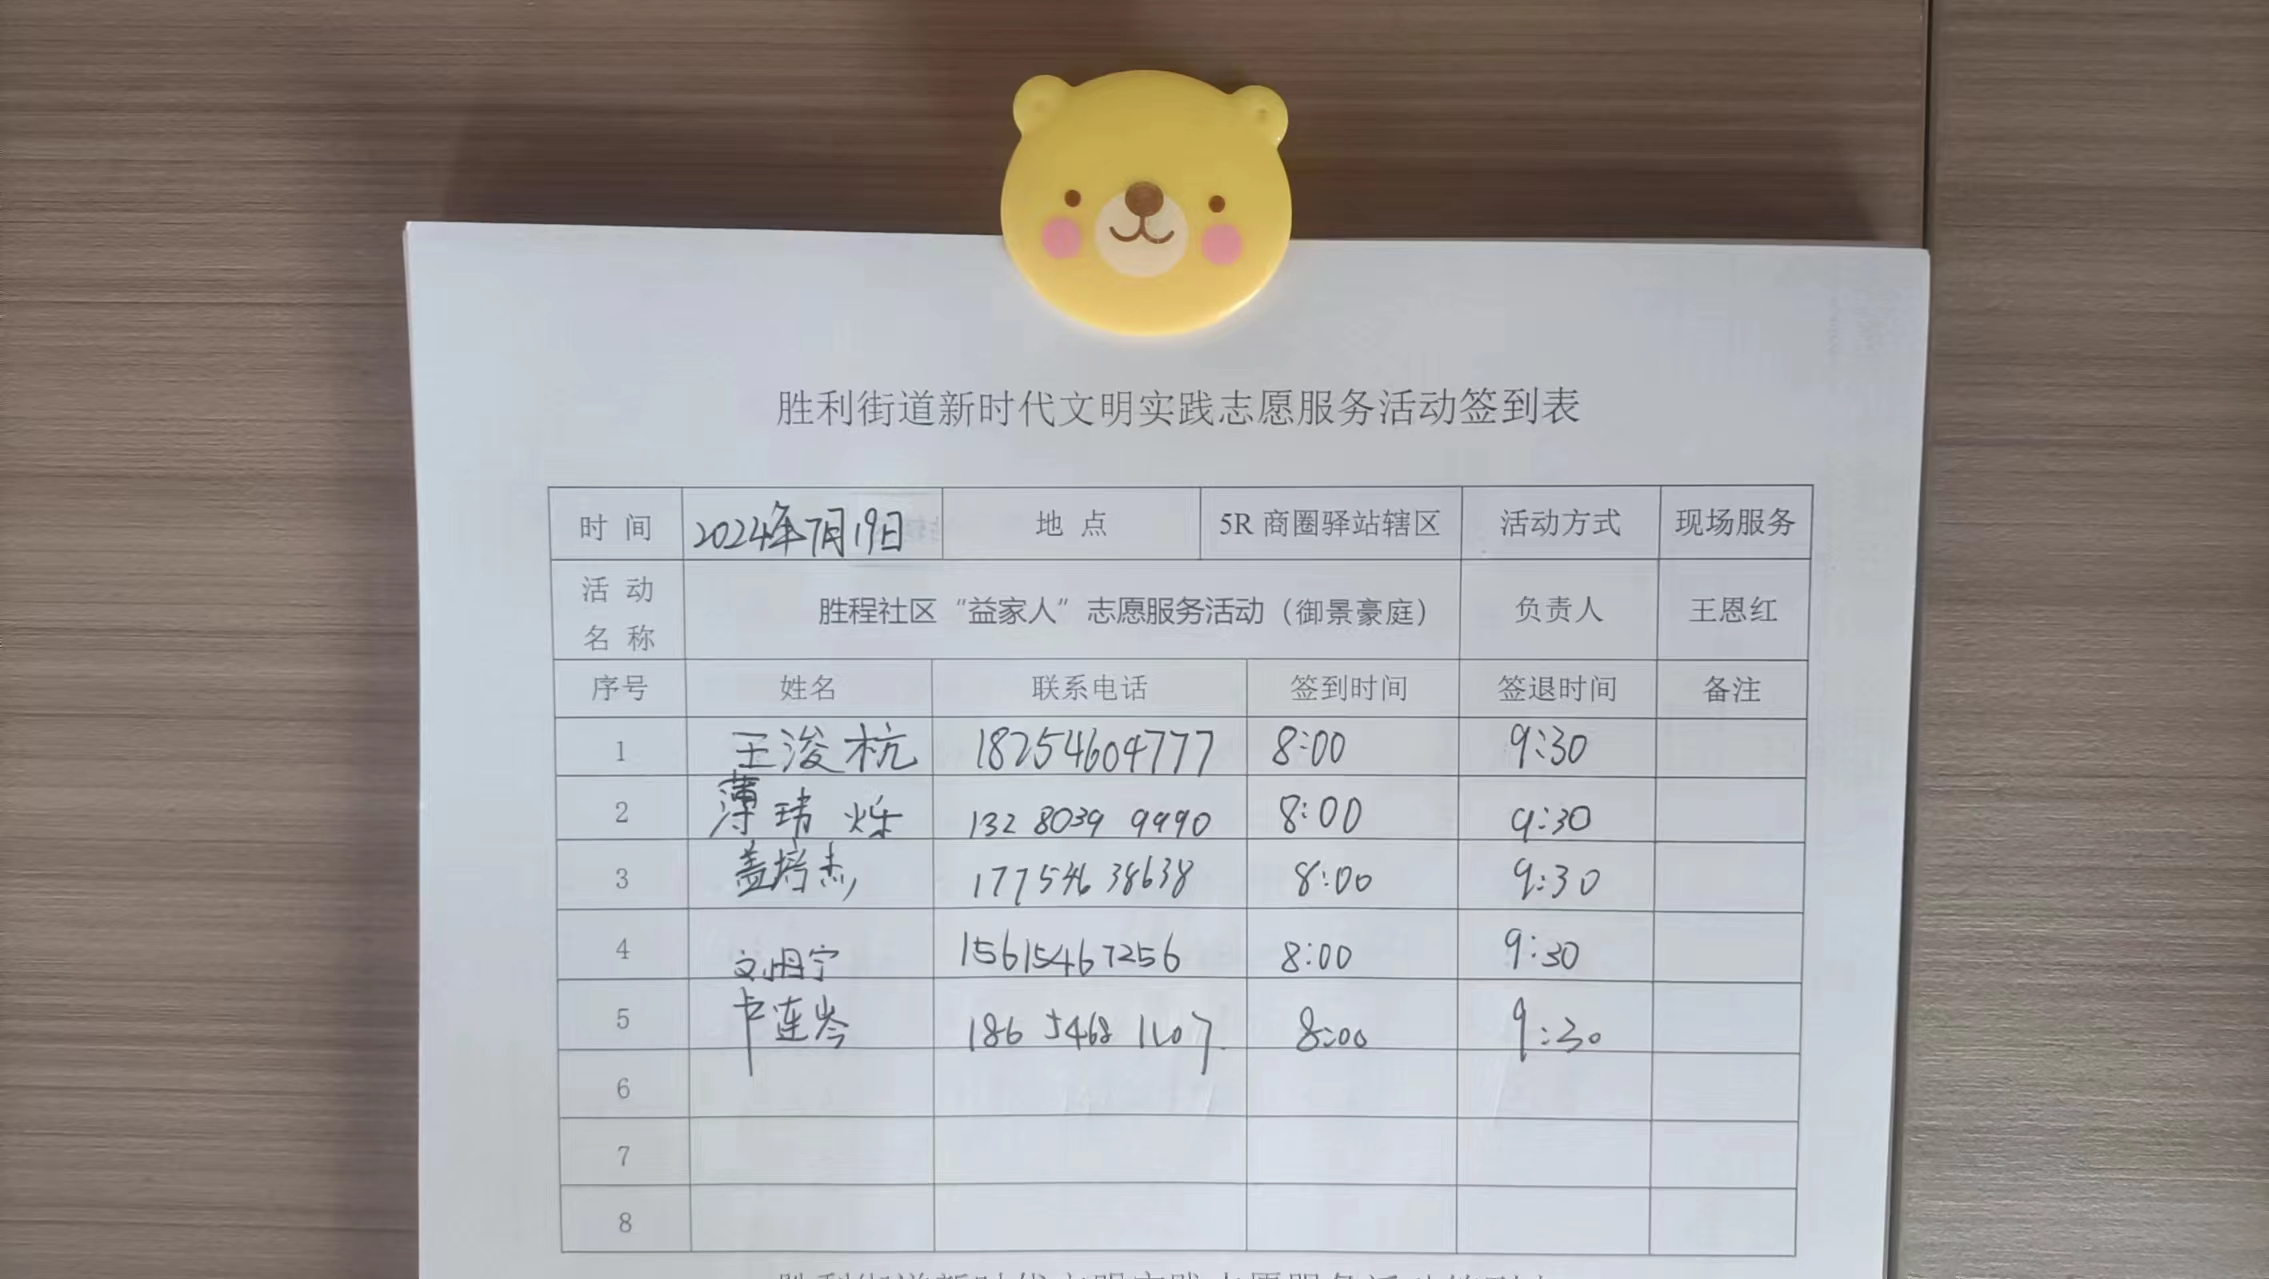 胜利街道新时代文明实践志愿服务活动签到表
时 间 2024年7月19日 地 点 5R 商圈驿站辖区 活动方式 现场服务
活 动 名 称 胜程社区“益家人”志愿服务活动（御景豪庭） 负责人 王恩红
序号 姓名 联系电话 签到时间 签退时间 备注
1 王浚杭 18254604777 8:00 9:30
2 薄玮烁 132 8039 9990 8:00 9:30
3 盖培杰 17754638638 8:00 9:30
4 刘丹宁 15615467256 8:00 9:30
5 卞连岑 186 5468 1107 8:00 9:30
6
7
8